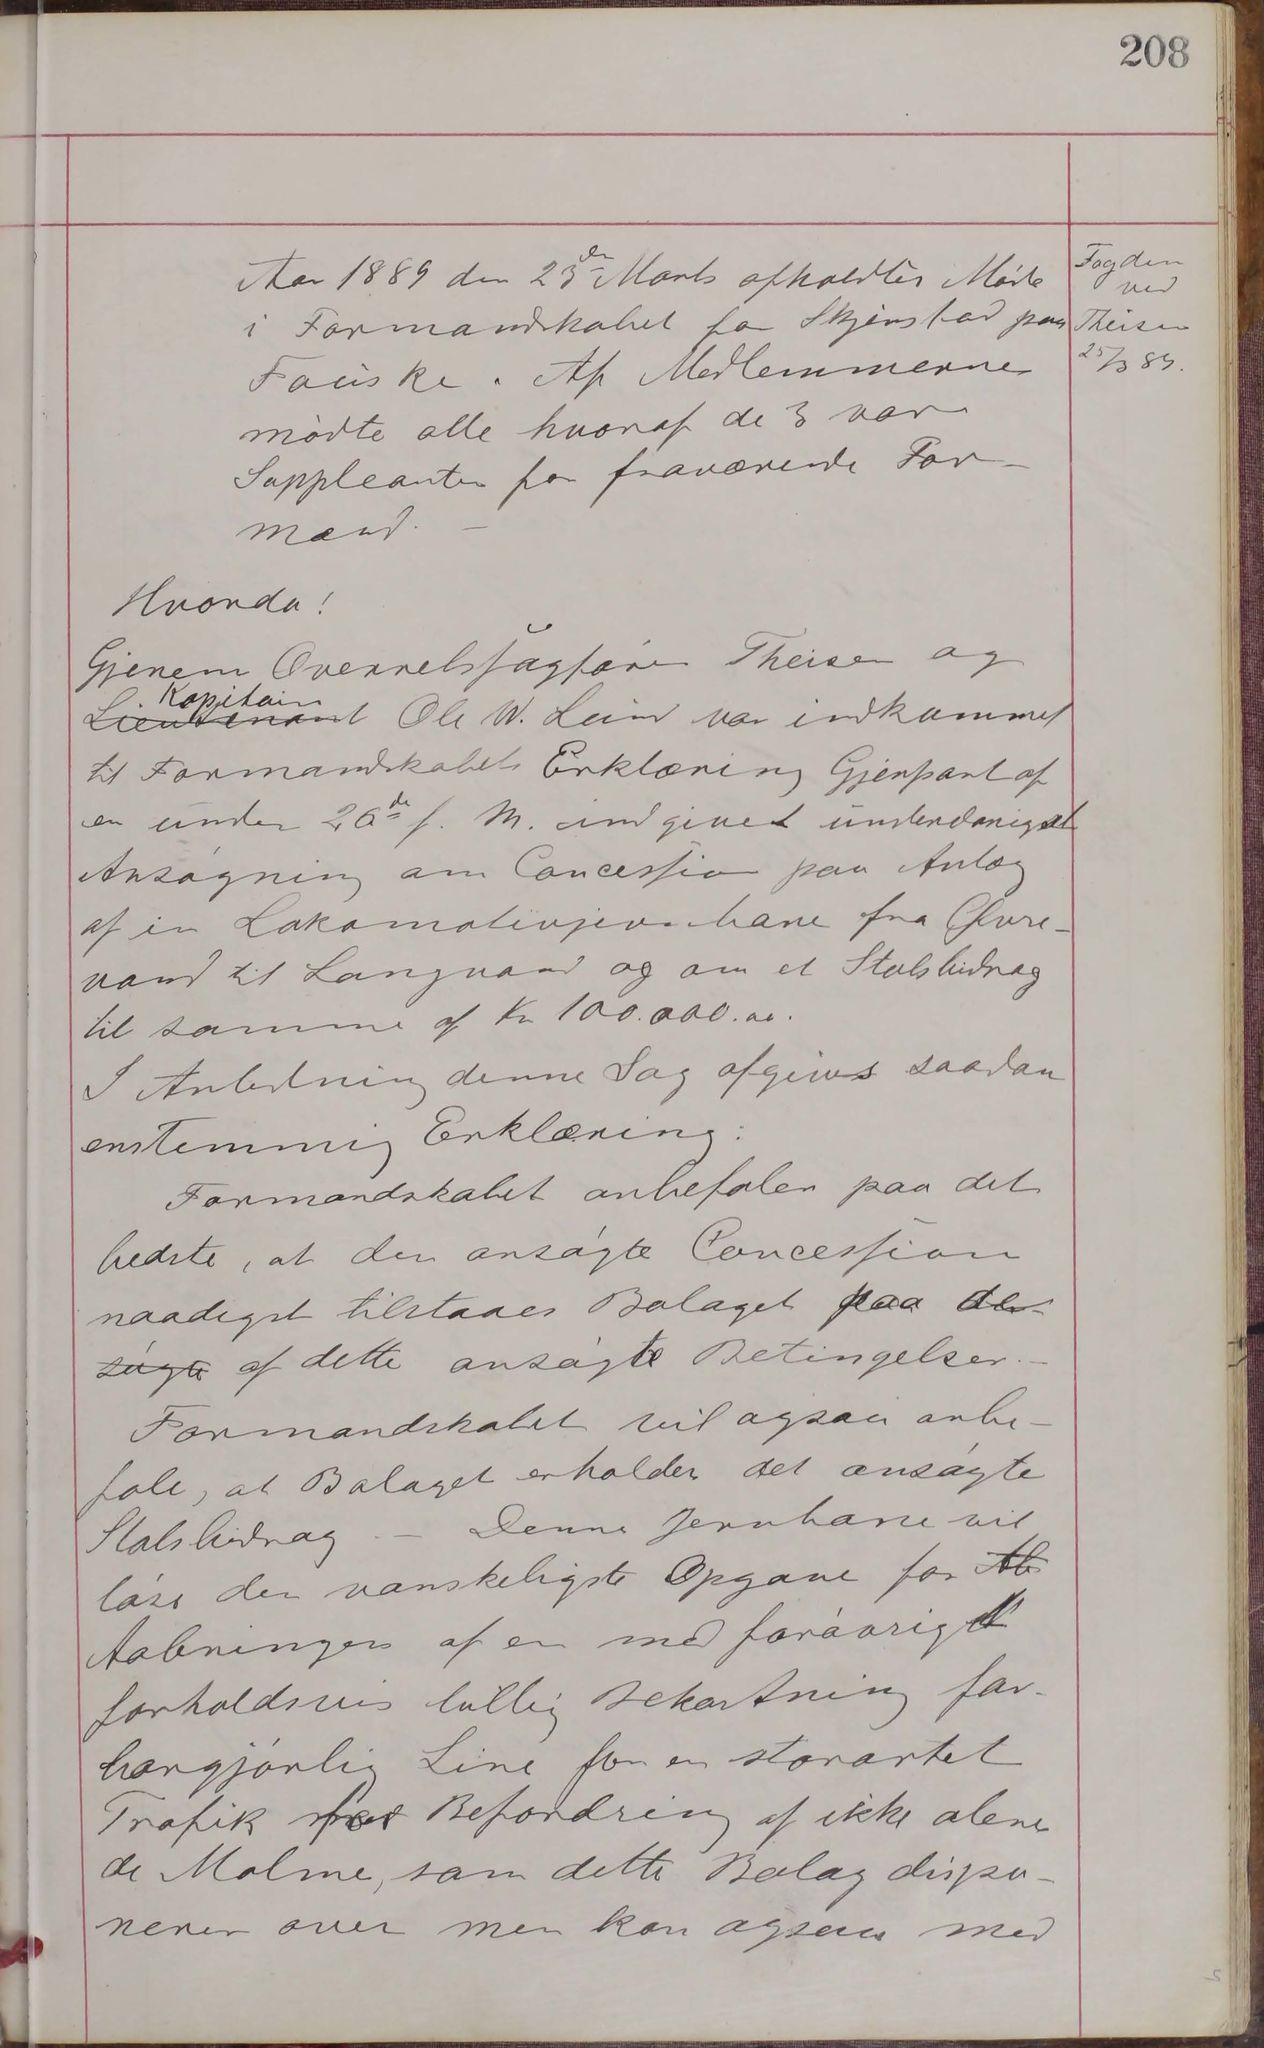 208
Aar 1889 den 23de Marts afholdtes Møde
i Formandskabet for Skjerstad paa
Fauske. Af Medlemmerne
mødte alle hvoraf de 3 var
Suppleanter for fraværende For-
mænd. -
Fogden
ved
Theisen
25/3 89.
Hvorda!
Gjenem Overretssagfører Theisen og
Kapitain
Lieutenant Ole W. Lund var indkommet
til Formandskabets Erklæring Gjenpart af
en under 26de f. M. indgivet underdanigst
Ansøgning om Concession paa Anlæg
af en Lokomotivjernbane fra Øvre-
vand til Langvand og om et Statsbidrag
til samme af Kr 100.000.00.
I Anledning denne Sag afgives saadan
enstemmig Erklæring:
Formandskabet anbefaler paa det
bedste, at den ansøgte Concession
naadigst tilstaaes Bolaget paa de
søgte af dette ansøgte Betingelser. -
Formandskabet vil ogsaa anbe-
fale, at Bolaget erholder det ansøgte
Statsbidrag - Denne Jernbane vil
løse den vanskeligste Opgave for
Aabningen af en med forøvrigt
forholdsvis billig Bekostning far-
bargjørlig Linie for en storartet
Trafik Befordring af ikke alene
de Malme, som dette Bolag dispo-
nerer over men kan ogsaa med